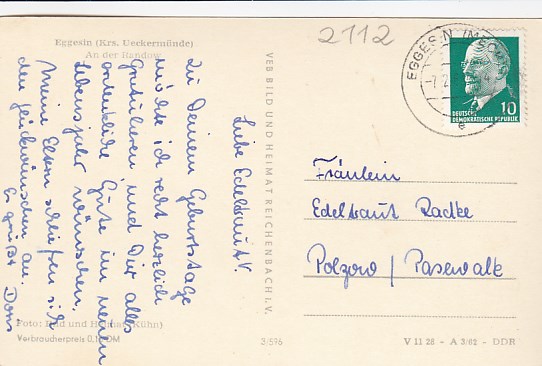 Eggesin (Krs. Ueckermünde)
An der Randow
2112
EGGESIN (MECKL
-7.2.
e
10
DEUTSCHE
DEMOKRATISCHE REPUBLIK
VEB BILD UND HEIMAT REICHENBACH I. V.
Liebe Edeltraut V.
Zu Deinem Geburtstage
möchte ich recht herzlich
gratulieren und Dir alles
erdenkliche Gute im neuen
Lebensjahr wünschen.
Meine Eltern schließen sich
den Glückwünschen an.
Es grüßt Doris
Fräulein
Edeltraut Radke
Polzow / Pasewalk
Foto: Bild und Heimat (Kühn)
Verbraucherpreis 0,10 DM
3/596
V 11 28 - A 3/62 - DDR